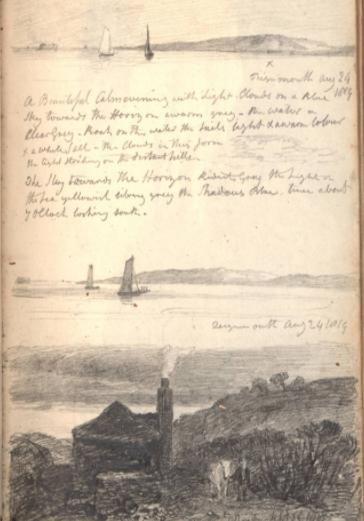 x
Teignmouth Aug 24
1819
A Beautiful Calm evening with light Clouds on a Blue
Sky towards the Horizon a warm grey - the water a
Clear Grey - on the water the sails light & warm colour
& a white sail - the Clouds in this form
the light on the distant hills
The Sky towards the Horizon Grey the Light on
the Sea yellowish grey the Shadows Blue. time about
7 OClock looking south.
Teignmouth Aug 24 1819